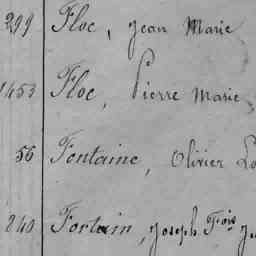 299 Floc, Jean Marie
1453 Floc, Pierre Marie
56 Fontaine, Olivier
240 Fortain, Joseph Fois